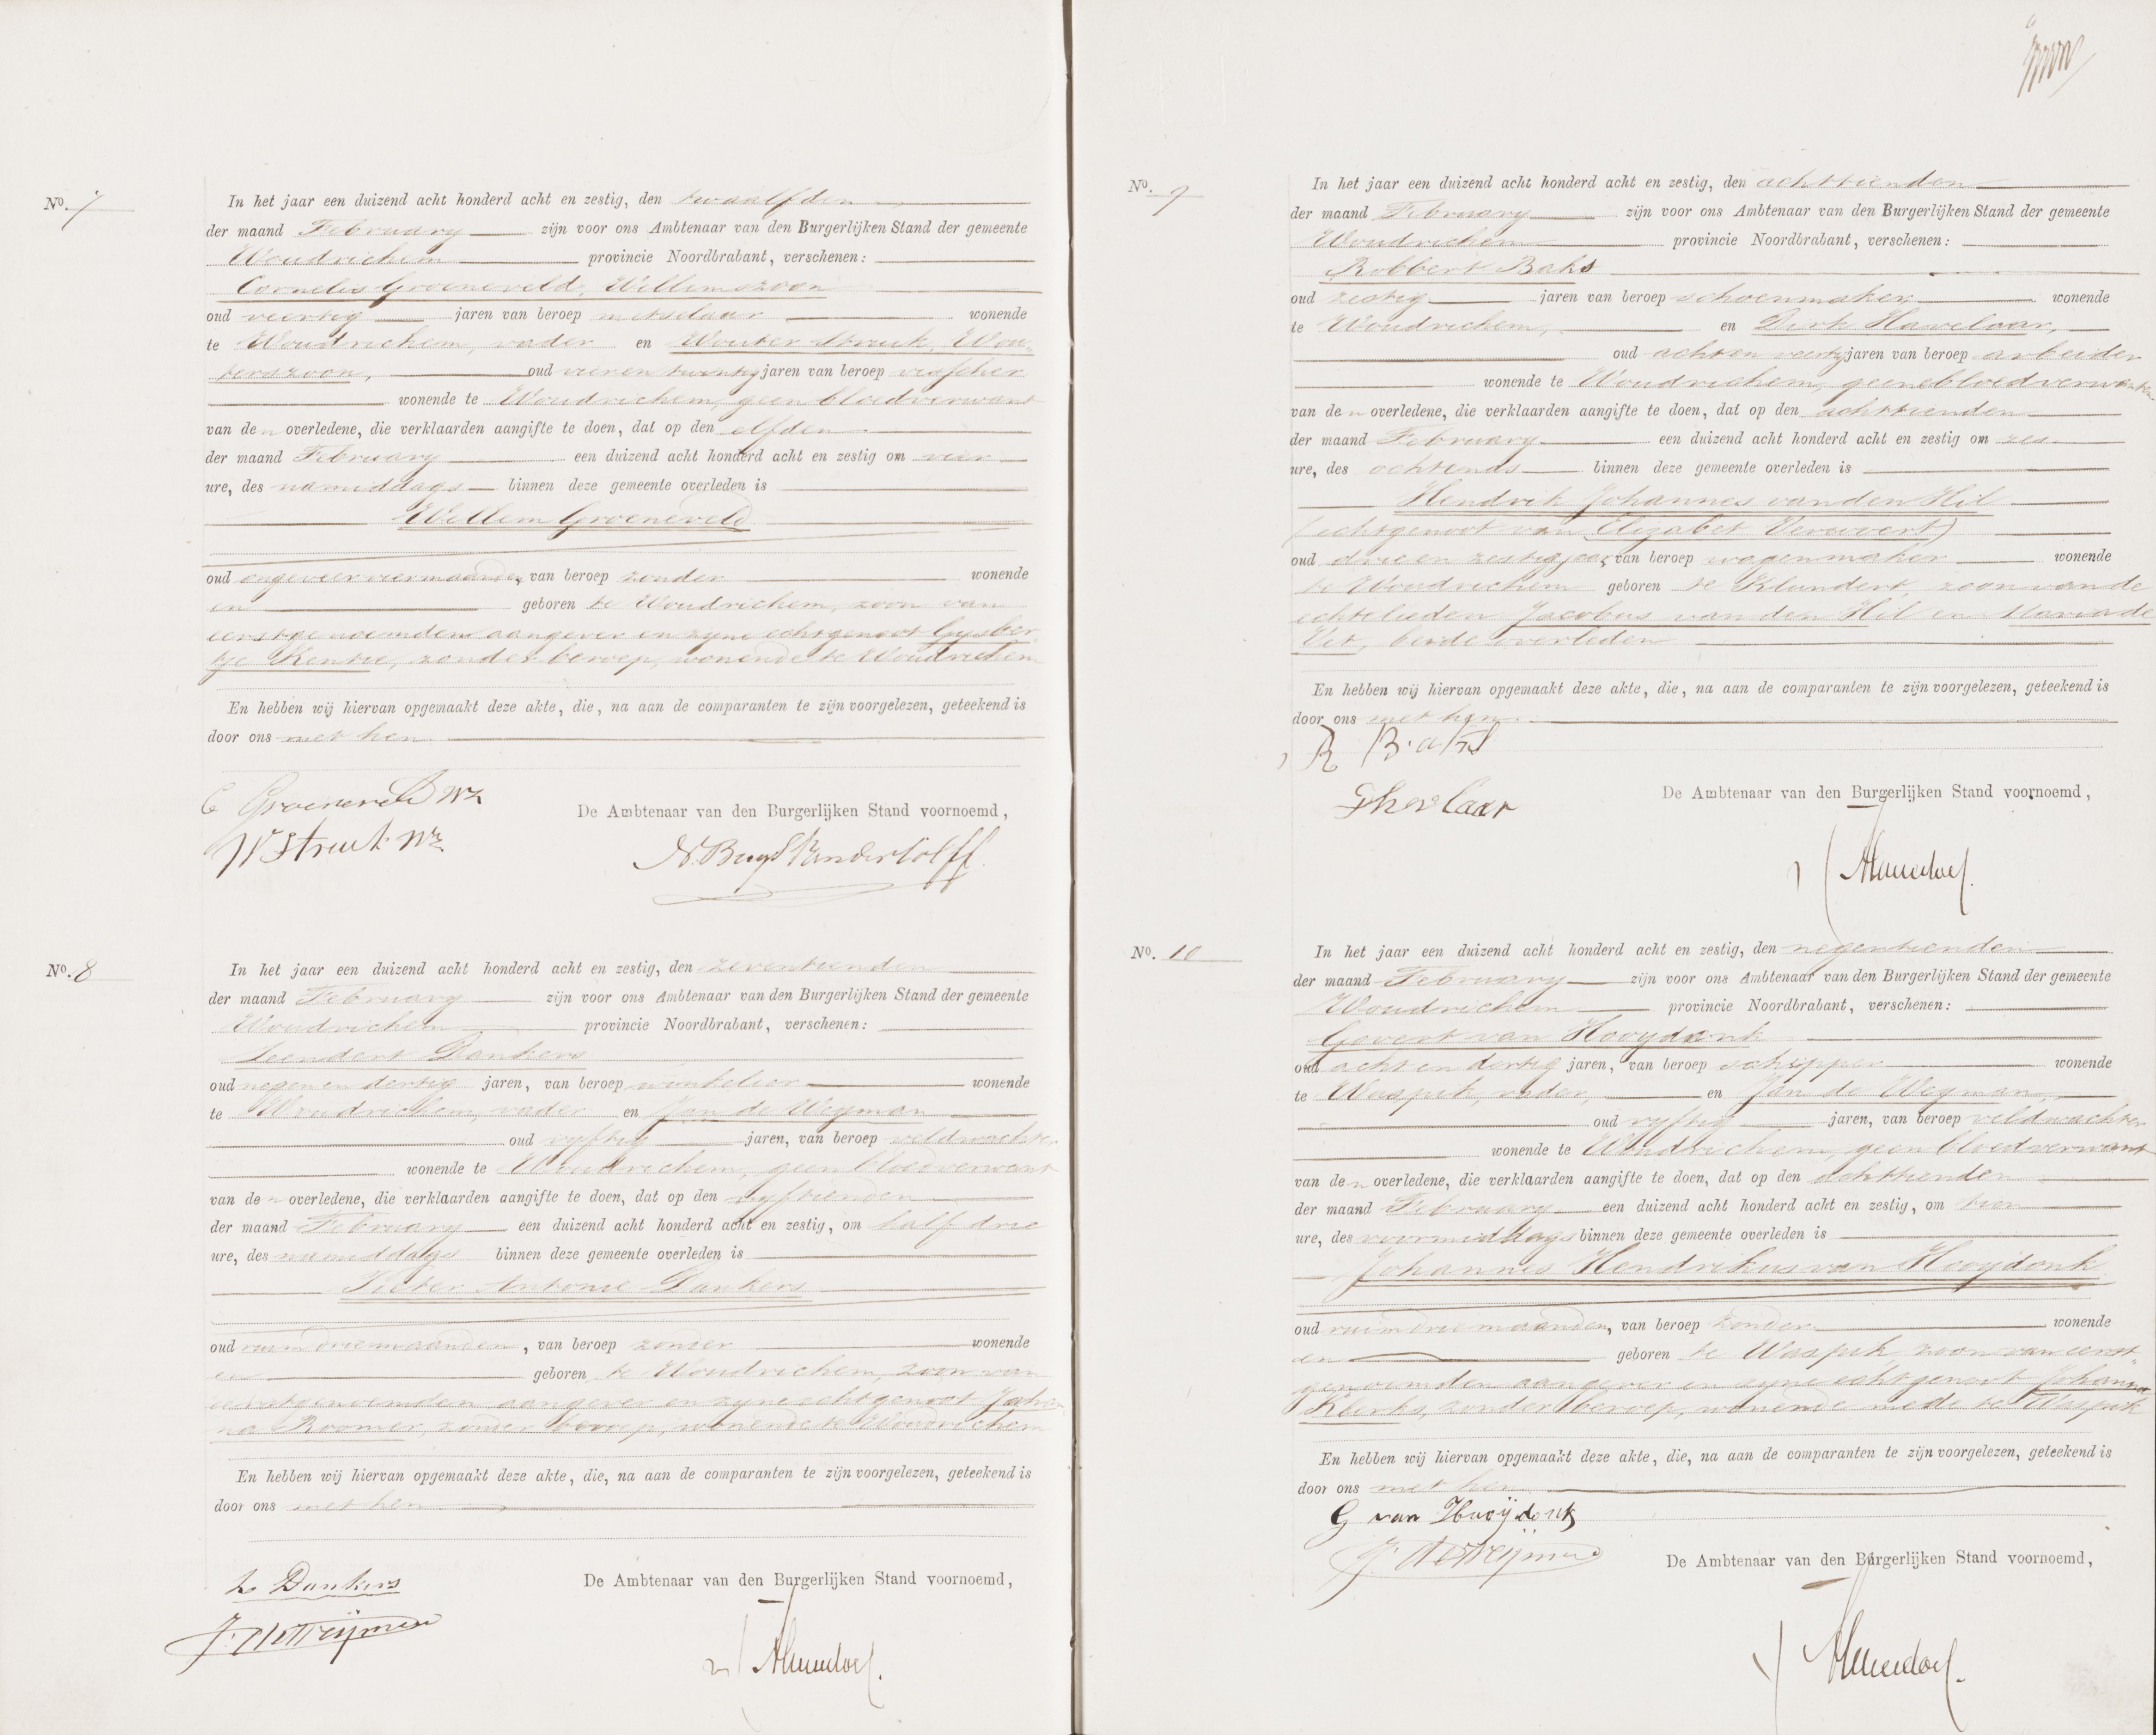 No. 7
In het jaar een duizend acht honderd acht en zestig, den twaalfden
der maand February zijn voor ons Ambtenaar van den Burgerlijken Stand der gemeente
Woudrichem provincie Noordbrabant, verschenen:
Cornelis Groeneveld, Willemszoon
oud veertig jaren van beroep metselaar wonende
te Woudrichem, vader en Wouter Struik, Wou-
terszoon, oud vier en twintig jaren van beroep visscher
wonende te Woudrichem, geen bloedverwant
van den overledene, die verklaarden aangifte te doen, dat op den elfden
der maand February een duizend acht honderd acht en zestig om vier
ure, des namiddags binnen deze gemeente overleden is
Willem Groeneveld
oud ongeveer vier maanden, van beroep zonder wonende
en geboren te Woudrichem, zoon van
eerstgenoemden aangever en zyne echtgenoot Gysber-
tje Kentie, zonder beroep, wonende te Woudrichem
En hebben wij hiervan opgemaakt deze akte, die, na aan de comparanten te zijn voorgelezen, geteekend is
door ons met hen
C Groeneveld Wz
W Struik Wz
De Ambtenaar van den Burgerlijken Stand voornoemd,
No. 8
In het jaar een duizend acht honderd acht en zestig, den zeventienden
der maand February zijn voor ons Ambtenaar van den Burgerlijken Stand der gemeente
Woudrichem provincie Noordbrabant, verschenen:
Leendert Dankers
oud negen en dertig jaren, van beroep winkelier wonende
te Woudrichem, vader en Jan de Weyman
oud vyftig jaren, van beroep veldwachter
wonende te Woudrichem, geen bloedverwant
van den overledene, die verklaarden aangifte te doen, dat op den vyftienden
der maand February een duizend acht honderd acht en zestig, om half drie
ure, des namiddags binnen deze gemeente overleden is
Pieter Antonie Dankers
oud ruim drie maanden, van beroep zonder wonende
en geboren te Woudrichem, zoon van
eerstgenoemden aangever en zyne echtgenoot Johan-
na Roomer, zonder beroep, wonende te Woudrichem
En hebben wij hiervan opgemaakt deze akte, die, na aan de comparanten te zijn voorgelezen, geteekend is
door ons met hen
L Dankers
De Ambtenaar van den Burgerlijken Stand voornoemd,
No. 9
In het jaar een duizend acht honderd acht en zestig, den achttienden
der maand February zijn voor ons Ambtenaar van den Burgerlijken Stand der gemeente
Woudrichem provincie Noordbrabant, verschenen:
Robbert Baks
oud zestig jaren van beroep schoenmaker wonende
te Woudrichem, en Dirk Havelaar,
oud acht en veertig jaren van beroep arbeider
wonende te Woudrichem, geene bloedverwanten
van den overledene, die verklaarden aangifte te doen, dat op den achttienden
der maand February een duizend acht honderd acht en zestig om zes
ure, des ochtends binnen deze gemeente overleden is
Hendrik Johannes van den Hil
(echtgenoot van Elizabet Verwvert)
oud drie en zestig jaar, van beroep wagenmaker wonende
te Woudrichem geboren te Klundert, zoon van de
echtelieden Jacobus van den Hil en Maria de
Vet, beide overleden
En hebben wij hiervan opgemaakt deze akte, die, na aan de comparanten te zijn voorgelezen, geteekend is
door ons met hen
R Baks
De Ambtenaar van den Burgerlijken Stand voornoemd,
No. 10
In het jaar een duizend acht honderd acht en zestig, den negentienden
der maand February zijn voor ons Ambtenaar van den Burgerlijken Stand der gemeente
Woudrichem provincie Noordbrabant, verschenen:
Govert van Hooydonk
oud acht en dertig jaren, van beroep schipper wonende
te Waspik, vader, en Jan de Weyman,
oud vyftig jaren, van beroep veldwachter
wonende te Woudrichem, geen bloedverwant
van den overledene, die verklaarden aangifte te doen, dat op den achttienden
der maand February een duizend acht honderd acht en zestig, om tien
ure, des voormiddags binnen deze gemeente overleden is
Johannes Hendrikus van Hooydonk
oud ruim drie maanden, van beroep zonder wonende
en geboren te Waspik, zoon van eerst-
genoemden aangever en zyne echtgenoot Johanna
Klerks, zonder beroep, wonende mede te Waspik
En hebben wij hiervan opgemaakt deze akte, die, na aan de comparanten te zijn voorgelezen, geteekend is
door ons met hen
G van Hooijdonk
De Ambtenaar van den Burgerlijken Stand voornoemd,